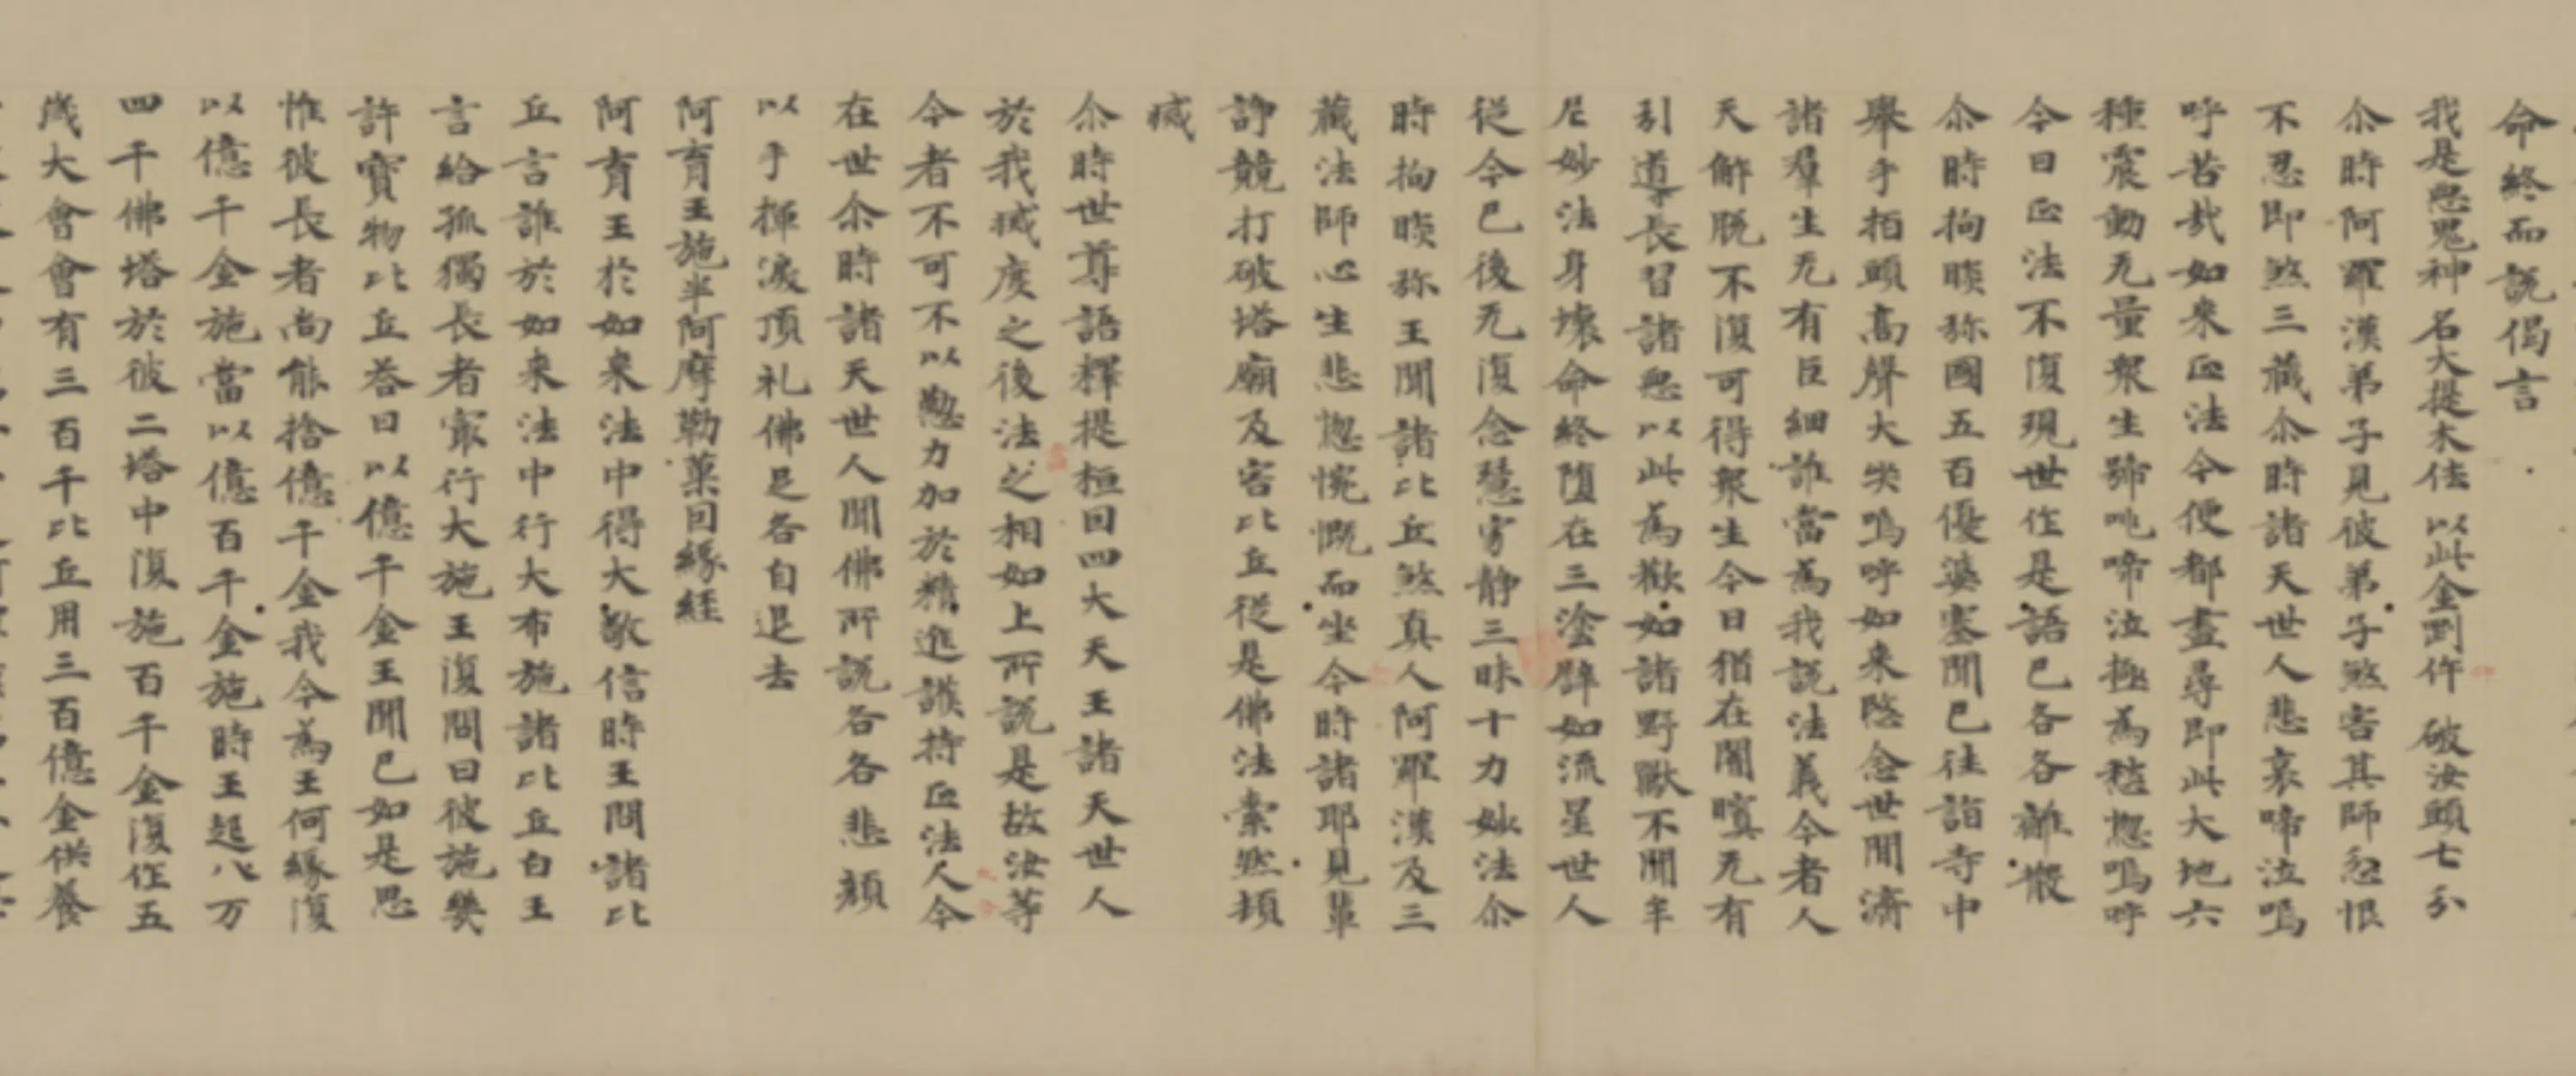 命終而説偈言
我是惡鬼神名大提木佉以此金剛杵破汝頭七分
尒時阿羅漢弟子見彼弟子煞害其師忿恨
不忍即煞三藏尒時諸天世人悲哀啼泣嗚
呼苦㢤如来正法今便都盡尋即此大地六
種震動无量衆生號咷啼泣極為愁惱嗚呼
今日正法不復現世作是語已各各離散
尒時拘睒弥國五百優婆塞聞已往詣寺中
舉手拍頭髙聲大哭嗚呼如来愍念世間濟
諸羣生无有巨細誰當為我説法義今者人
天解脱不復可得衆生今日猶在闇瞑无有
引道長習諸惡以此為歡如諸野獸不聞牟
尼妙法身壞命終堕在三塗譬如流星世人
従今已後无復念慧寂静三昧十力妙法尒
時拘睒弥王聞諸比丘煞真人阿羅漢及三
藏法師心生悲惱惋慨而坐今時諸耶見輩
諍競打破塔廟及害比丘従是佛法索然頓
滅
尒時世尊語釋提桓因四大天王諸天世人
於我滅度之後法之相如上所説是故汝等
今者不可不以懃力加於精進護持正法人今
在世尒時諸天世人聞佛所説各各悲顔
以手揮淚頂礼佛足各自退去
阿育王施半阿摩勒菓因縁経
阿育王於如来法中得大敬信時王問諸比
丘言誰於如来法中行大布施諸比丘白王
言給孤獨長者㝡行大施王復問曰彼施㡬
許寶物比丘荅曰以億千金王聞已如是思
惟彼長者尚能捨億千金我今為王何縁復
以億千金施當以億百千金施時王起八万
四千佛塔於彼二塔中復施百千金復作五
歳大會會有三百千比丘用三百億金供養